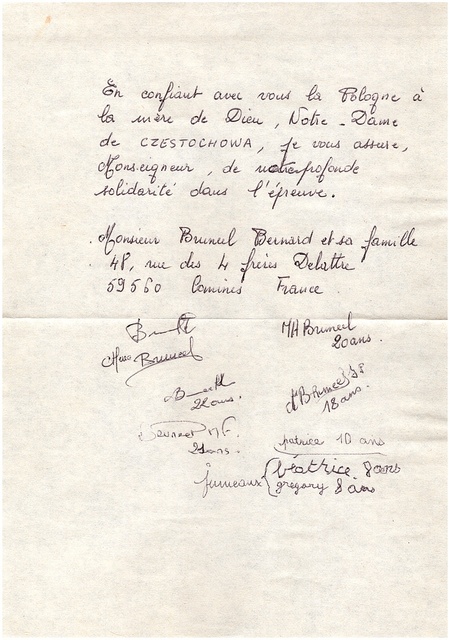 En confiant avec vous la Pologne à
la mère de Dieu, Notre-Dame
de CZESTOCHOWA, je vous assure,
Monseigneur, de notre profonde
solidarité dans l'épreuve.
Monsieur Bruneel Bernard et sa famille
48, rue des 4 frères Delattre
59560 Comines France
MH Bruneel
20 ans.
Bruneel
22 ans.
18 ans.
21 ans.
patrice 10 ans
jumeaux { béatrice 8 ans
gregory 8 ans